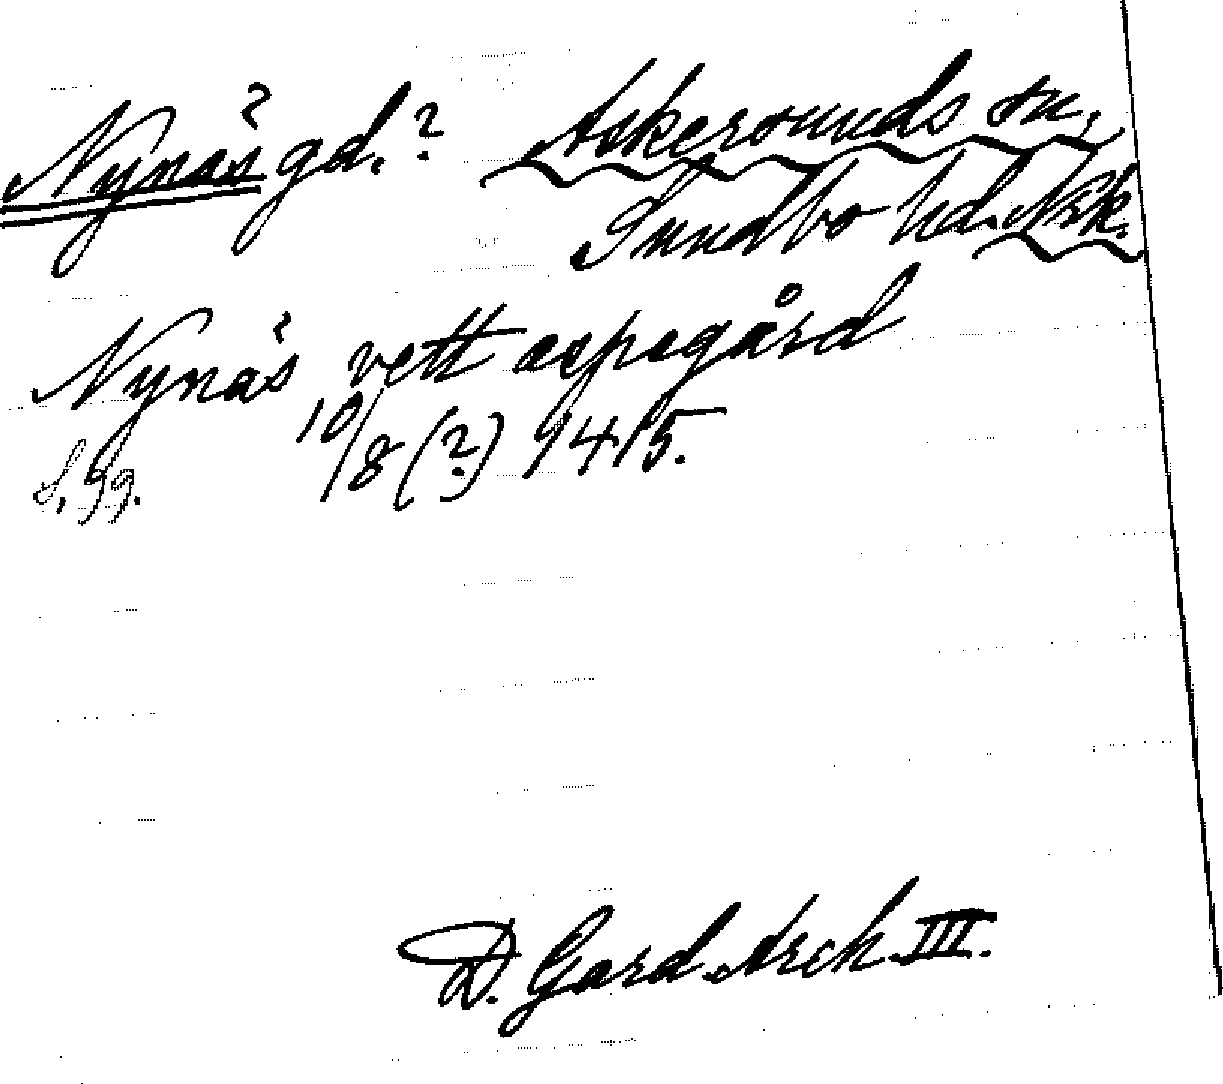 Nynäs gd.? Askersunds sn,
Sundbo hd. Nrk.
Nynäs rett aspegård
10/8 (?) 1415.
s. 99.
D. Gard. Arch. III.